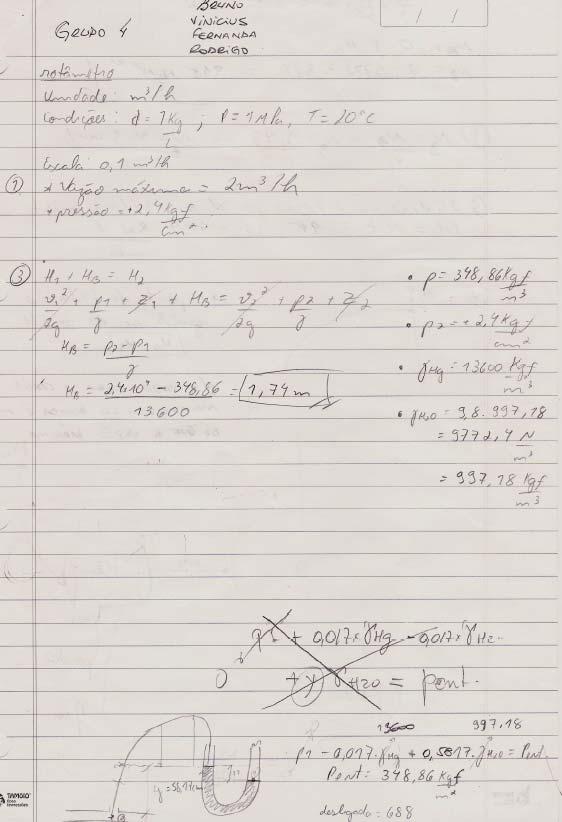 GRUPO 4
BRUNO
VINICIUS
FERNANDA
RODRIGO
rotâmetro
Unidade: m³/h
Condições: d = 1 Kg/L ; P = 1 MPa, T = 20°C
Escala: 0,1 m³/h
① * Vazão máxima = 2 m³/h
* pressão = +2,4 Kgf/cm²
③ H1 + HB = H2
v1²/2g + p1/γ + z1 + HB = v2²/2g + p2/γ + z2
HB = p2 - p1/γ
HB = 2,4x10⁴ - 348,86/13600 = 1,74 m
• p = 348,86 Kgf/m³
• p2 = +2,4 Kgf/cm²
• γHg = 13600 Kgf/m³
• γH2O = 9,8 . 997,18
= 9772,4 N/m³
= 997,18 Kgf/m³
+ 0,017 x γHg - 0,017 x γH2O
+ y γH2O = pent.
13600 997,18
p1 - 0,017 . γHg + 0,5817 . γH2O = Pent.
Pent: 348,86 Kgf/m²
desligada = 688
TAMOIO